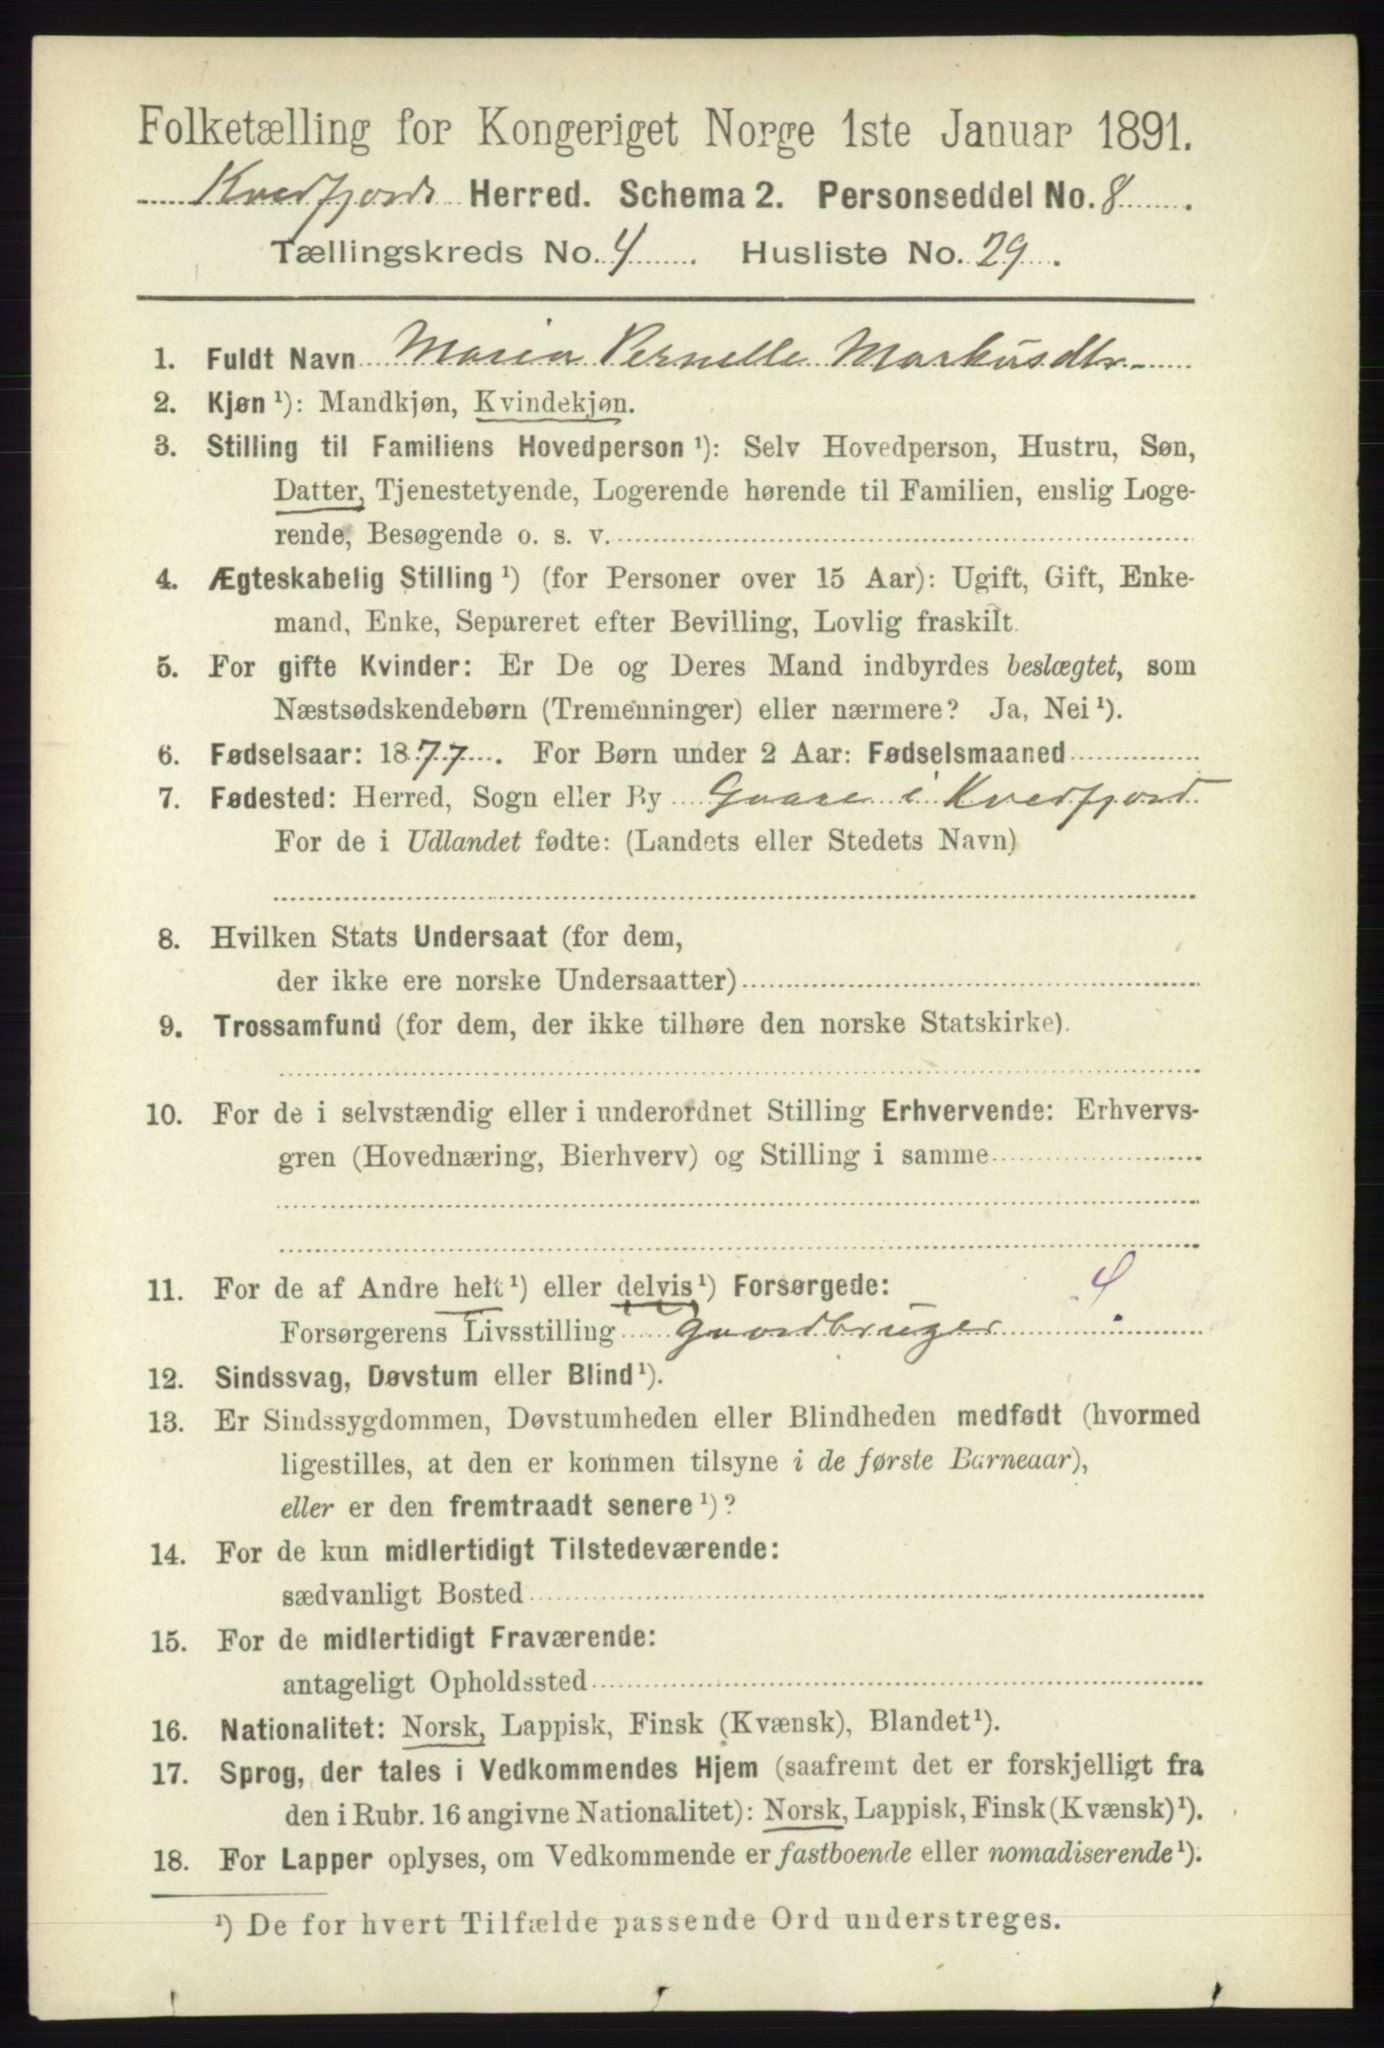 Folketælling for Kongeriget Norge 1ste Januar 1891.
Kvedfjords Herred. Schema 2. Personseddel No. 8.
Tællingskreds No. 4. Husliste No. 29.
1. Fuldt Navn Maria Pernelle Markusdtr
2. Kjøn ¹): Mandkjøn, Kvindekjøn.
3. Stilling til Familiens Hovedperson ¹): Selv Hovedperson, Hustru, Søn,
Datter, Tjenestetyende, Logerende hørende til Familien, enslig Loge-
rende, Besøgende o. s. v.
4. Ægteskabelig Stilling ¹) (for Personer over 15 Aar): Ugift, Gift, Enke-
mand, Enke, Separeret efter Bevilling, Lovlig fraskilt.
5. For gifte Kvinder: Er De og Deres Mand indbyrdes beslægtet, som
Næstsødskendebørn (Tremenninger) eller nærmere? Ja, Nei ¹).
6. Fødselsaar: 1877. For Børn under 2 Aar: Fødselsmaaned
7. Fødested: Herred, Sogn eller By Gaare i Kvedfjord
For de i Udlandet fødte: (Landets eller Stedets Navn)
8. Hvilken Stats Undersaat (for dem,
der ikke ere norske Undersaatter)
9. Trossamfund (for dem, der ikke tilhøre den norske Statskirke).
10. For de i selvstændig eller i underordnet Stilling Erhvervende: Erhvervs-
gren (Hovednæring, Bierhverv) og Stilling i samme
11. For de af Andre helt ¹) eller delvis ¹) Forsørgede:
Forsørgerens Livsstilling Gaardbruger
12. Sindssvag, Døvstum eller Blind ¹).
13. Er Sindssygdommen, Døvstumheden eller Blindheden medfødt (hvormed
ligestilles, at den er kommen tilsyne i de første Barneaar),
eller er den fremtraadt senere ¹)?
14. For de kun midlertidigt Tilstedeværende:
sædvanligt Bosted
15. For de midlertidigt Fraværende:
antageligt Opholdssted
16. Nationalitet: Norsk, Lappisk, Finsk (Kvænsk), Blandet ¹).
17. Sprog, der tales i Vedkommendes Hjem (saafremt det er forskjelligt fra
den i Rubr. 16 angivne Nationalitet): Norsk, Lappisk, Finsk (Kvænsk) ¹).
18. For Lapper oplyses, om Vedkommende er fastboende eller nomadiserende ¹).
¹) De for hvert Tilfælde passende Ord understreges.